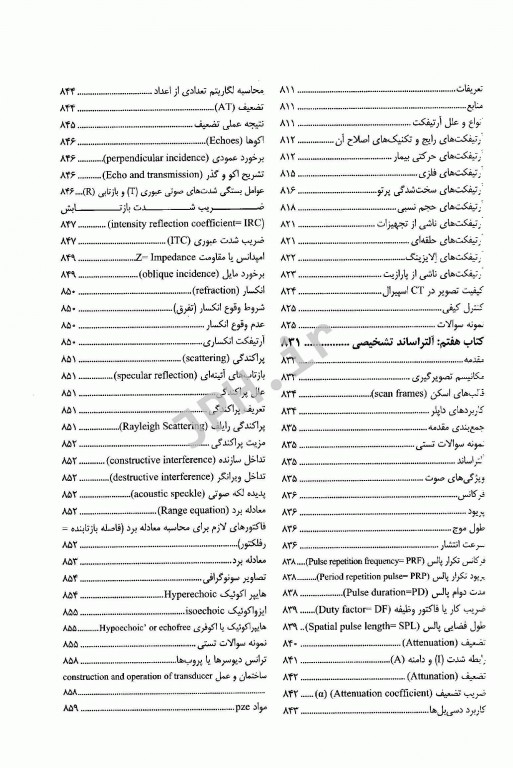 تعریفات ۸۱۱
منابع ۸۱۱
نواع و علل آرتیفکت ۸۱۱
رتیفکت‌های رایج و تکنیک‌های اصلاح آن ۸۱۲
رتیفکت‌های حرکتی بیمار ۸۱۲
رتیفکت‌های فلزی ۸۱۵
رتیفکت‌های سخت‌شدگی پرتو ۸۱۶
رتیفکت‌های حجم نسبی ۸۱۸
رتیفکت‌های ناشی از تجهیزات ۸۲۱
رتیفکت‌های حلقه‌ای ۸۲۱
رتیفکت‌های الایزینگ ۸۲۲
رتیفکت‌های ناشی از پارازیت ۸۲۳
کیفیت تصویر در CT اسپیرال ۸۲۴
کنترل کیفی ۸۲۵
نمونه سوالات ۸۲۵
کتاب هفتم: آلتراساند تشخیصی ۸۳۱
مقدمه ۸۳۲
مکانیسم تصویرگیری ۸۳۲
قالب‌های اسکن (scan frames) ۸۳۴
کاربردهای داپلر ۸۳۴
جمع‌بندی مقدمه ۸۳۵
نمونه سوالات تستی ۸۳۵
لتراساند ۸۳۵
ویژگی‌های صوت ۸۳۵
فرکانس ۸۳۶
پریود ۸۳۶
طول موج ۸۳۶
سرعت انتشار ۸۳۶
فرکانس تکرار پالس (Pulse repetition frequency= PRF) ۸۳۸
پریود تکرار پالس (Period repetition pulse= PRP) ۸۳۸
مدت دوام پالس (Pulse duration=PD) ۸۳۸
ضریب کار یا فاکتور وظیفه (Duty factor= DF) ۸۳۹
طول فضایی پالس (Spatial pulse length= SPL) ۸۳۹
تضعیف (Attenuation) ۸۴۰
رابطه شدت (I) و دامنه (A) ۸۴۱
تضعیف (Attunation) ۸۴۲
ضریب تضعیف (Attenuation cocfficient) (α) ۸۴۲
کاربرد دسی‌بل‌ها ۸۴۳
محاسبه لگاریتم تعدادی از اعداد ۸۴۴
تضعیف (AT) ۸۴۴
نتیجه عملی تضعیف ۸۴۵
اکوها (Echoes) ۸۴۶
برخورد عمودی (perpendicular incidence) ۸۴۶
تشریح اکو و گذر (Echo and transmission) ۸۴۶
عوامل بستگی شدت‌های صوتی عبوری (T) و بازتابی (R) ۸۴۶
ضریب شدت بازتابش
(intensity reflection coefficient= IRC) ۸۴۷
ضریب شدت عبوری (ITC) ۸۴۷
امپدانس یا مقاومت Z= Impedance ۸۴۹
برخورد مایل (oblique incidence) ۸۴۹
انکسار (refraction) ۸۵۰
شروط وقوع انکسار (تفرق) ۸۵۰
عدم وقوع انکسار ۸۵۰
آرتیفکت انکساری ۸۵۰
پراکندگی (scattering) ۸۵۱
بازتاب‌های آئینه‌ای (specular reflection) ۸۵۱
علل پراکندگی ۸۵۱
تعریف پراکندگی ۸۵۱
پراکندگی رایله (Rayleigh Scattering) ۸۵۱
مزیت پراکندگی ۸۵۲
تداخل سازنده (constructive interference) ۸۵۲
تداخل ویرانگر (destructive interference) ۸۵۲
پدیده لکه صوتی (acoustic speckle) ۸۵۲
معادله برد (Range equation) ۸۵۲
فاکتورهای لازم برای محاسبه معادله برد (فاصله بازتابنده =
رفلکتور) ۸۵۲
معادله برد ۸۵۳
تصاویر سونوگرافی ۸۵۴
هایپر اکوئیک Hyperechoic ۸۵۴
ایزواکوئیک isoechoic ۸۵۵
هایپراکوئیک یا اکوفری Hypoechoic' or echofree ۸۵۵
نمونه سوالات تستی ۸۵۵
ترانس دیوسرها یا پروب‌ها ۸۵۸
ساختمان و عمل construction and operation of transducer
۸۵۸
مواد pze ۸۵۹
JPH.ir